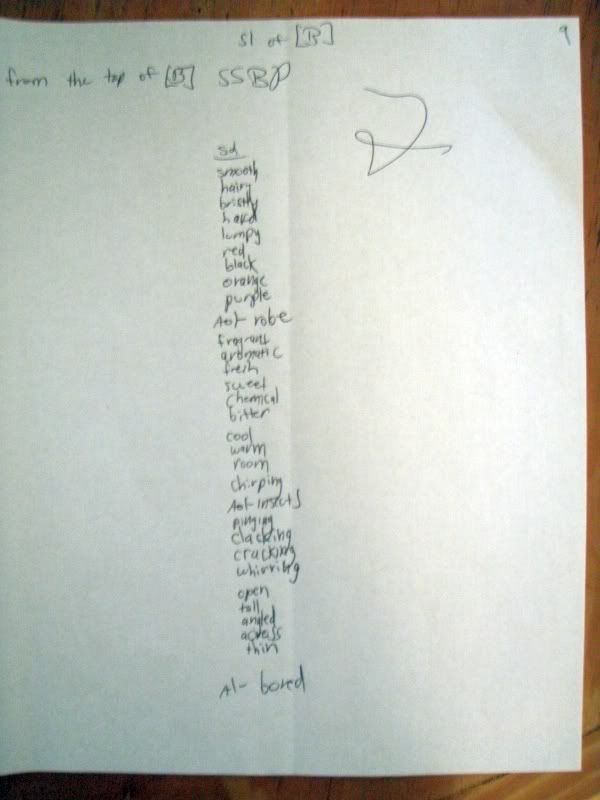 S1 of [B] 9
from the top of [B] SSBP
Sd
smooth
hairy
bristly
hard
lumpy
red
black
orange
purple
Aol- robe
fragrant
aromatic
fresh
sweet
chemical
bitter
cool
warm
room
chirping
Aol-insects
pinging
clacking
cracking
whirring
open
tall
angled
across
thin
AI- bored